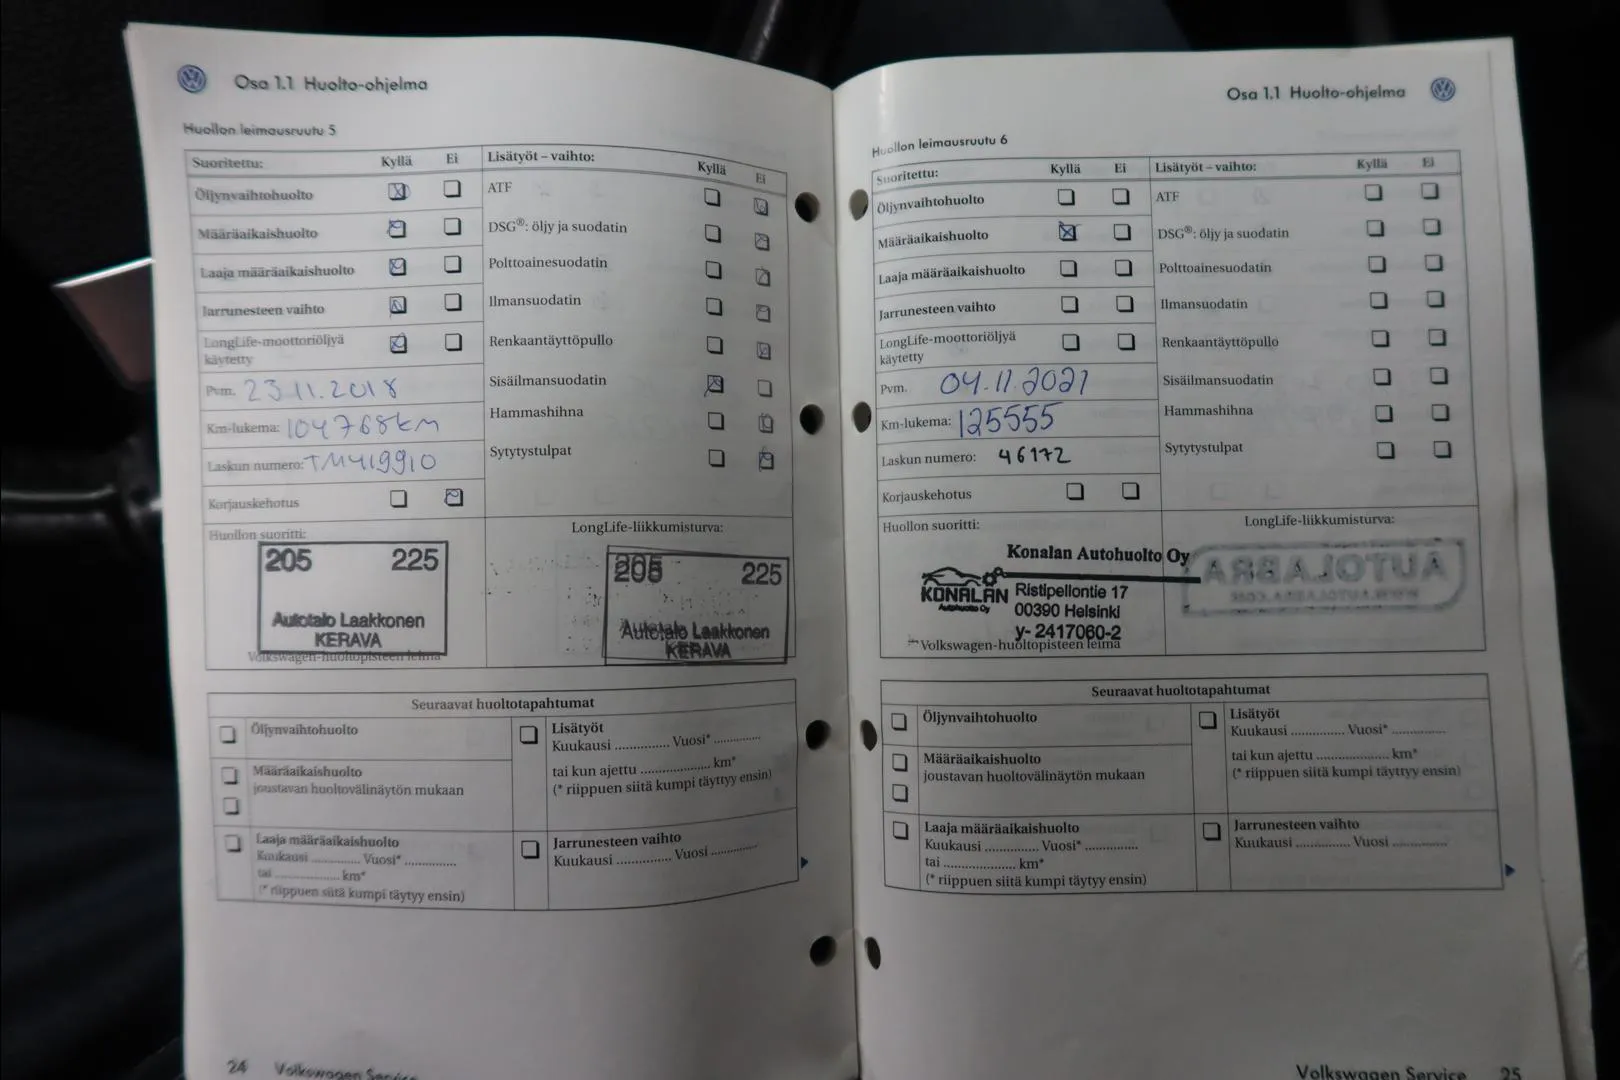 Osa 1.1 Huolto-ohjelma
Huollon leimausruutu 5
Suoritettu: Kyllä Ei
Öljynvaihtohuolto
Määräaikaishuolto
Laaja määräaikaishuolto
Jarrunesteen vaihto
LongLife-moottoriöljyä
käytetty
Pvm. 23.11.2018
Km-lukema: 104768km
Laskun numero: TM419910
Korjauskehotus
Lisätyöt – vaihto: Kyllä Ei
ATF
DSG®: öljy ja suodatin
Polttoainesuodatin
Ilmansuodatin
Renkaantäyttöpullo
Sisäilmansuodatin
Hammashihna
Sytytystulpat
Huollon suoritti:
205 225
Autotalo Laakkonen
KERAVA
Volkswagen-huoltopisteen leima
LongLife-liikkumisturva:
205 225
Autotalo Laakkonen
KERAVA
Seuraavat huoltotapahtumat
Öljynvaihtohuolto
Määräaikaishuolto
joustavan huoltovälinäytön mukaan
Laaja määräaikaishuolto
Kuukausi .............. Vuosi* ...............
tai .................... km*
(* riippuen siitä kumpi täytyy ensin)
Lisätyöt
Kuukausi ................ Vuosi* ..............
tai kun ajettu ..................... km*
(* riippuen siitä kumpi täyttyy ensin)
Jarrunesteen vaihto
Kuukausi ................ Vuosi ..............
24 Volkswagen Service
Osa 1.1 Huolto-ohjelma
Huollon leimausruutu 6
Suoritettu: Kyllä Ei
Öljynvaihtohuolto
Määräaikaishuolto
Laaja määräaikaishuolto
Jarrunesteen vaihto
LongLife-moottoriöljyä
käytetty
Pvm. 04.11.2021
Km-lukema: 125555
Laskun numero: 46172
Korjauskehotus
Lisätyöt – vaihto: Kyllä Ei
ATF
DSG®: öljy ja suodatin
Polttoainesuodatin
Ilmansuodatin
Renkaantäyttöpullo
Sisäilmansuodatin
Hammashihna
Sytytystulpat
Huollon suoritti:
Konalan Autohuolto Oy
KONALAN
Autohuolto Oy
Ristipellontie 17
00390 Helsinki
y- 2417060-2
Volkswagen-huoltopisteen leima
LongLife-liikkumisturva:
AUTOLABRA
WWW.AUTOLABRA.COM
Seuraavat huoltotapahtumat
Öljynvaihtohuolto
Määräaikaishuolto
joustavan huoltovälinäytön mukaan
Laaja määräaikaishuolto
Kuukausi ................ Vuosi* ................
tai .................... km*
(* riippuen siitä kumpi täytyy ensin)
Lisätyöt
Kuukausi ................ Vuosi* ................
tai kun ajettu ..................... km*
(* riippuen siitä kumpi täyttyy ensin)
Jarrunesteen vaihto
Kuukausi ................ Vuosi ................
Volkswagen Service 25